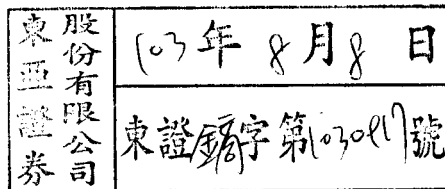 東亞證券
股份有限公司
103年8月8日
東證鎬字第1030817號